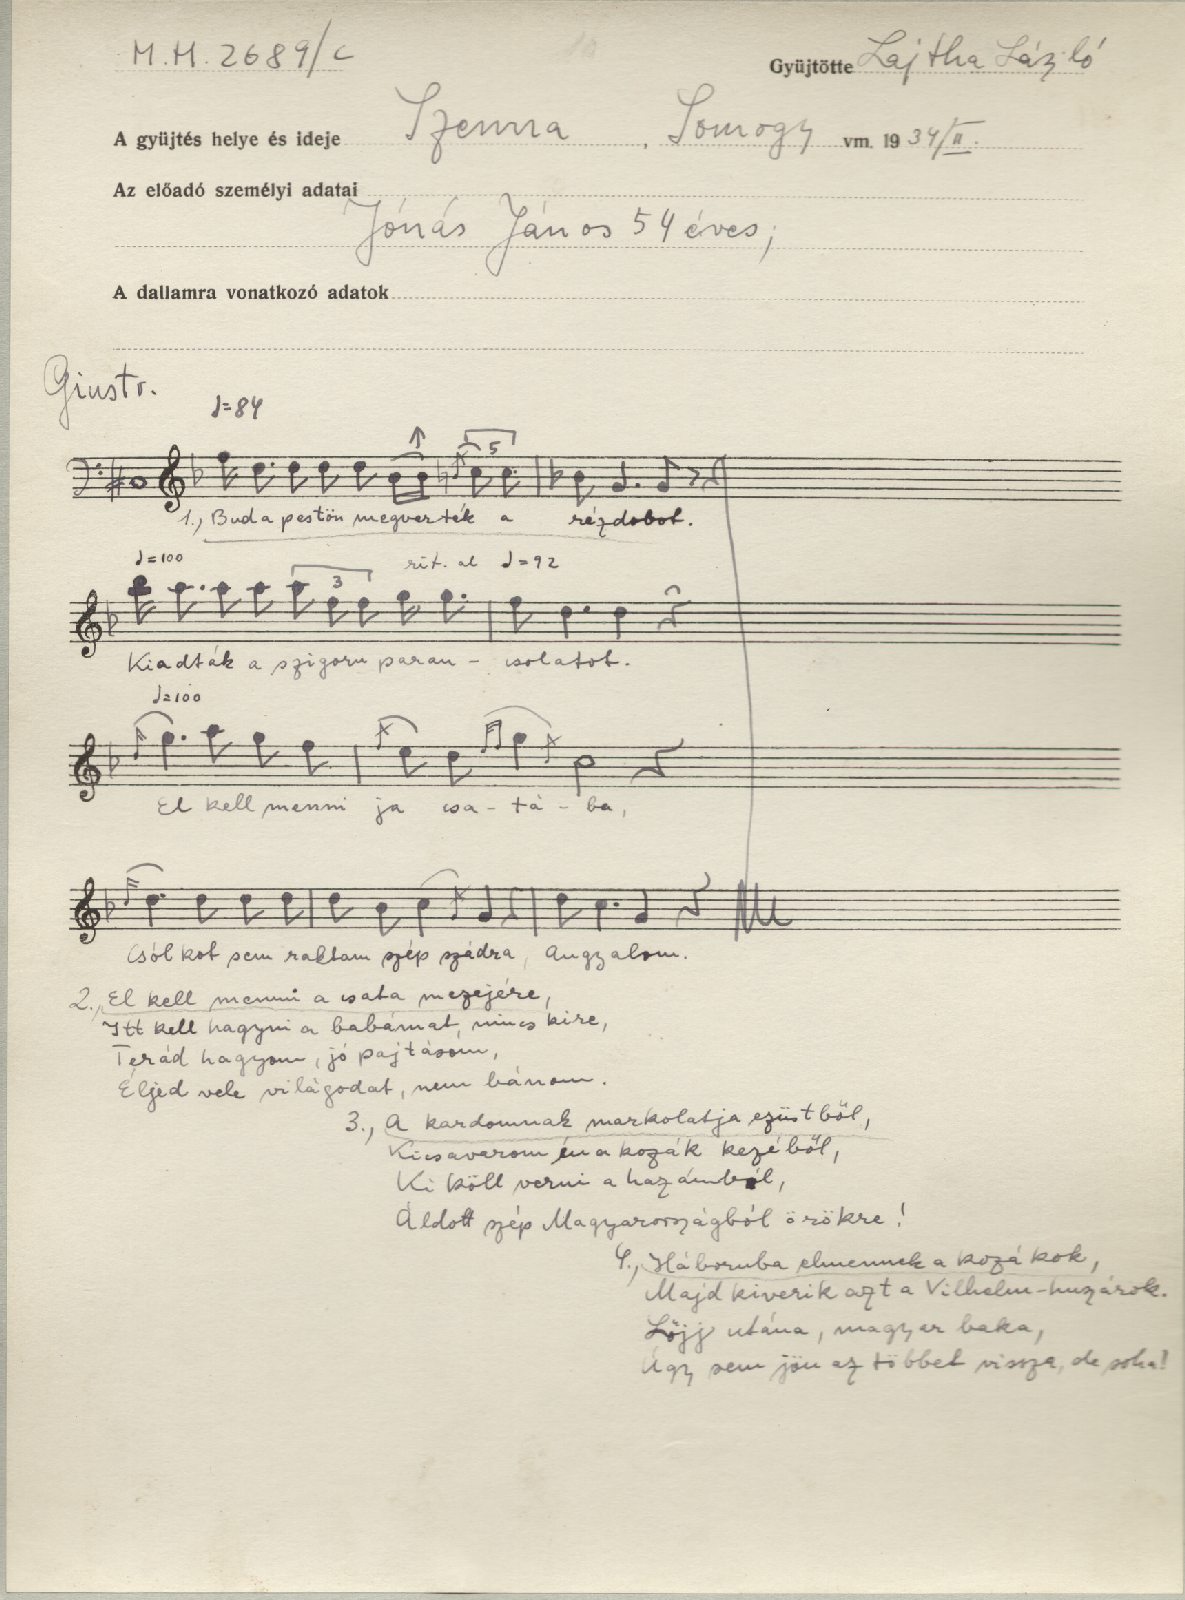 M.M. 2689/c
Gyüjtötte Lajtha László
A gyüjtés helye és ideje Szenna, Somogy vm. 1934/II.
Az előadó személyi adatai
Jónás János 54 éves;
A dallamra vonatkozó adatok
Giusto.
♩=84
5
1., Budapestön megverték a rézdobot.
♩=100 rit. al ♩=92
3
Kiadták a szigoru paran - csolatot.
♩=100
El kell menni ja csa - tá - ba,
Csólkot sem raktam szép szádra, angyalom.
2., El kell menni a csata mezejére,
Itt kell hagyni a babámat, nincs kire,
Terád hagyom, jó pajtásom,
Éljed vele világodat, nem bánom.
3., A kardomnak markolatja ezüstből,
Kicsavarom én a kozák kezéből,
Ki köll verni a hazámból,
Áldott szép Magyarországból örökre!
4., Háboruba elmennek a kozákok,
Majd kiverik azt a Vilhelm-huzárok.
Lőjj utána, magyar baka,
Úgy sem jön az többet vissza, de soha!